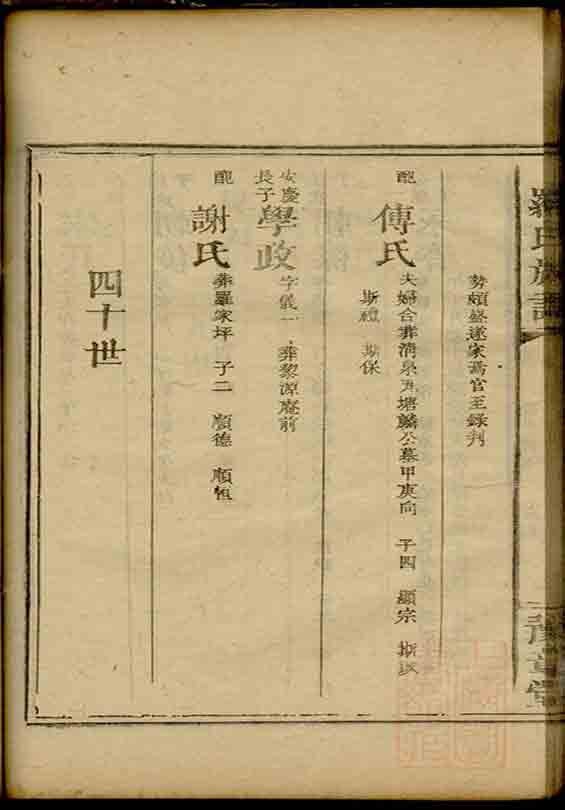 羅氏族譜
豫章堂
勢頗盛遂家焉官至錄判
配 傅氏 夫婦合葬清泉瓦塘麟公墓甲庚向 子四 顯宗 斯
斯禮 斯保
安慶長子 學政 字儀一 葬黎源庵前
配 謝氏 葬羅家坪 子二 順德 順恒
四十世